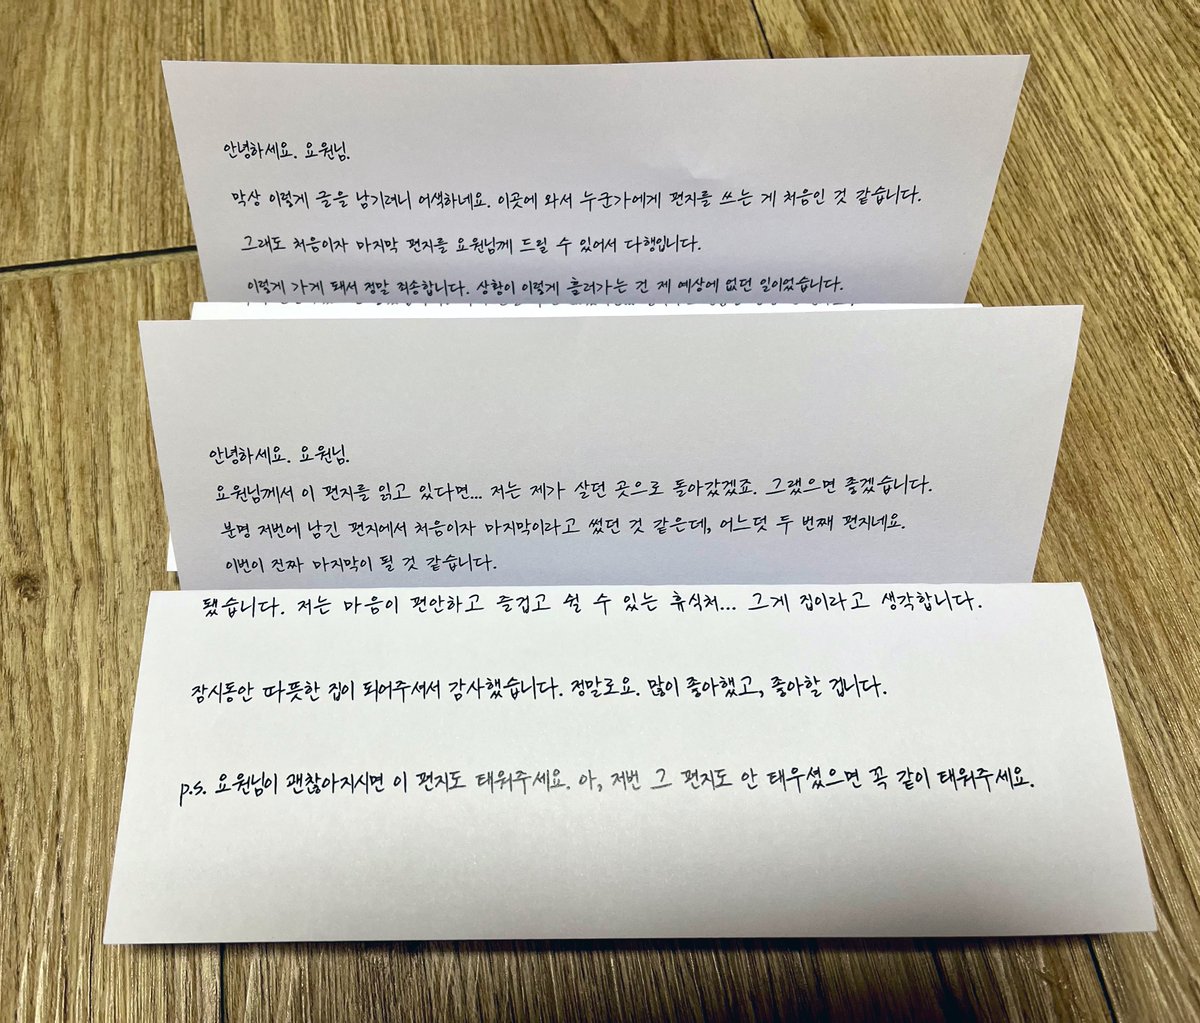 안녕하세요. 요원님.
막상 이렇게 글을 남기려니 어색하네요. 이곳에 와서 누군가에게 편지를 쓰는 게 처음인 것 같습니다.
그래도 처음이자 마지막 편지를 요원님께 드릴 수 있어서 다행입니다.
이렇게 가게 돼서 정말 죄송합니다. 상황이 이렇게 흘러가는 건 제 예상에 없던 일이었습니다.
안녕하세요. 요원님.
요원님께서 이 편지를 읽고 있다면... 저는 제가 살던 곳으로 돌아갔겠죠. 그랬으면 좋겠습니다.
분명 저번에 남긴 편지에서 처음이자 마지막이라고 썼던 것 같은데, 어느덧 두 번째 편지네요.
이번이 진짜 마지막이 될 것 같습니다.
됐습니다. 저는 마음이 편안하고 즐겁고 쉴 수 있는 휴식처... 그게 집이라고 생각합니다.
잠시동안 따뜻한 집이 되어주셔서 감사했습니다. 정말로요. 많이 좋아했고, 좋아할 겁니다.
p.s. 요원님이 괜찮아지시면 이 편지도 태워주세요. 아, 저번 그 편지도 안 태우셨으면 꼭 같이 태워주세요.